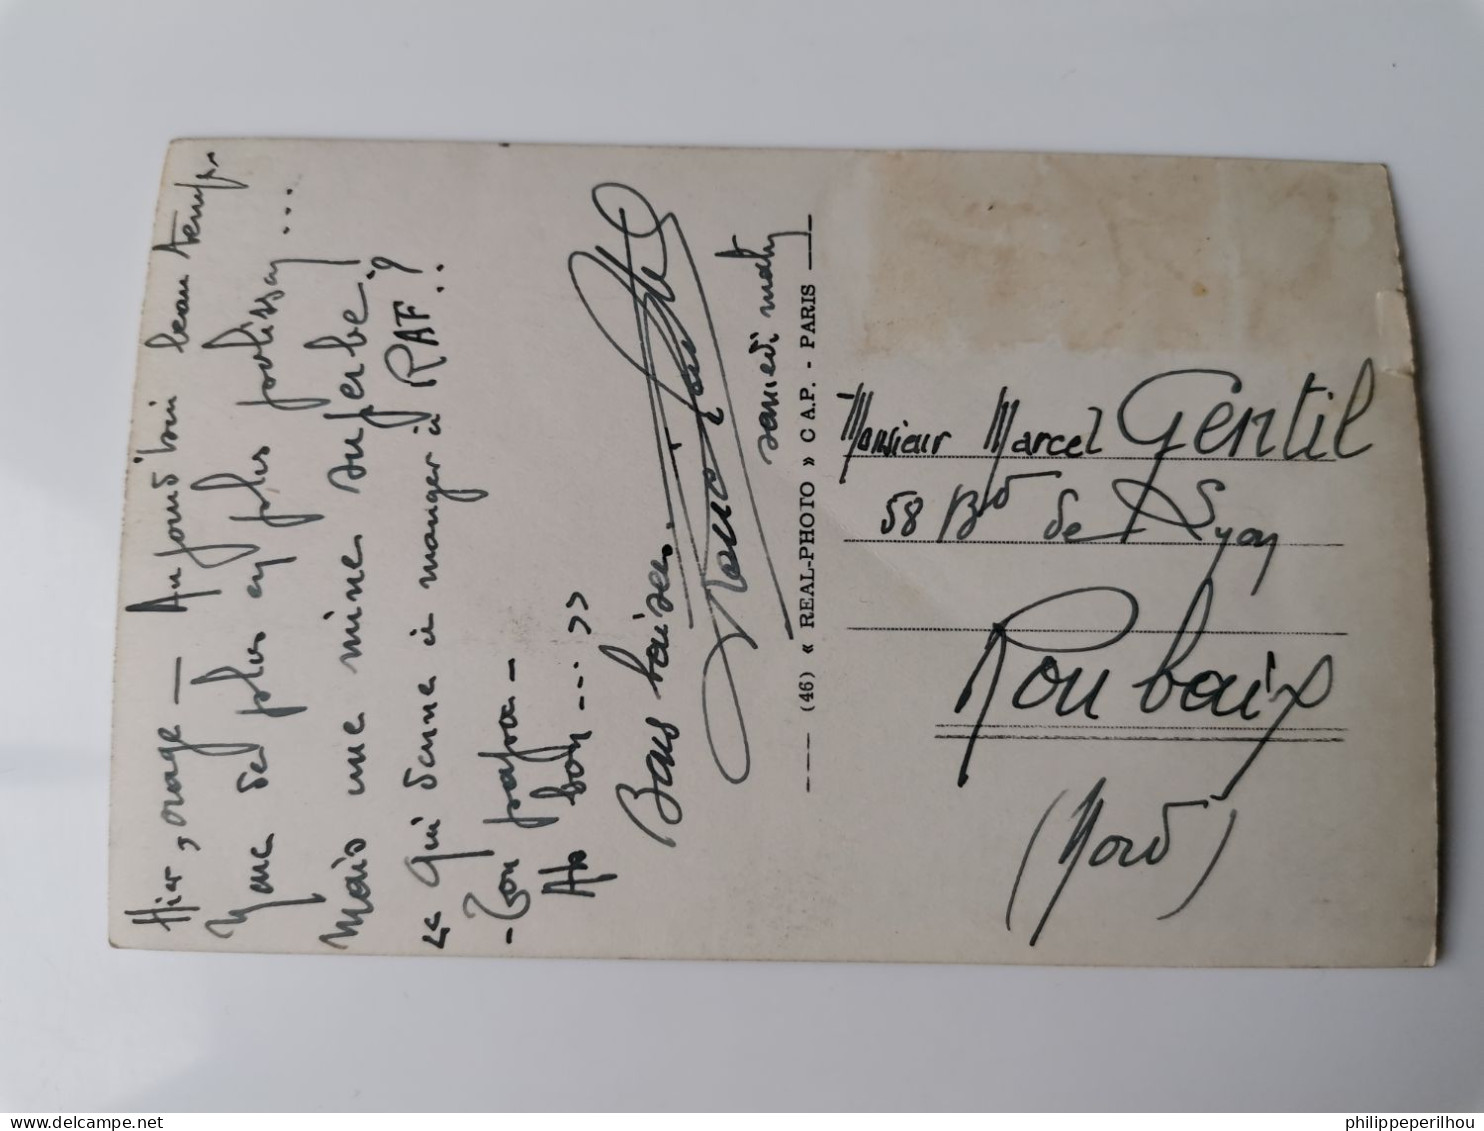 Hier, orage — Aujourd'hui beau temps
de plus en plus polisson...
Mais une mine superbe!
« Qui donne à manger à RAF?
- Ton papa -
Ah bon.... »
Bons baisers.
samedi matin
(46) « REAL-PHOTO » C A.P. - PARIS
Monsieur Marcel Gentil
58 Bd de Lyon
Roubaix
(Nord)
philippeperilhou
delcampe.net